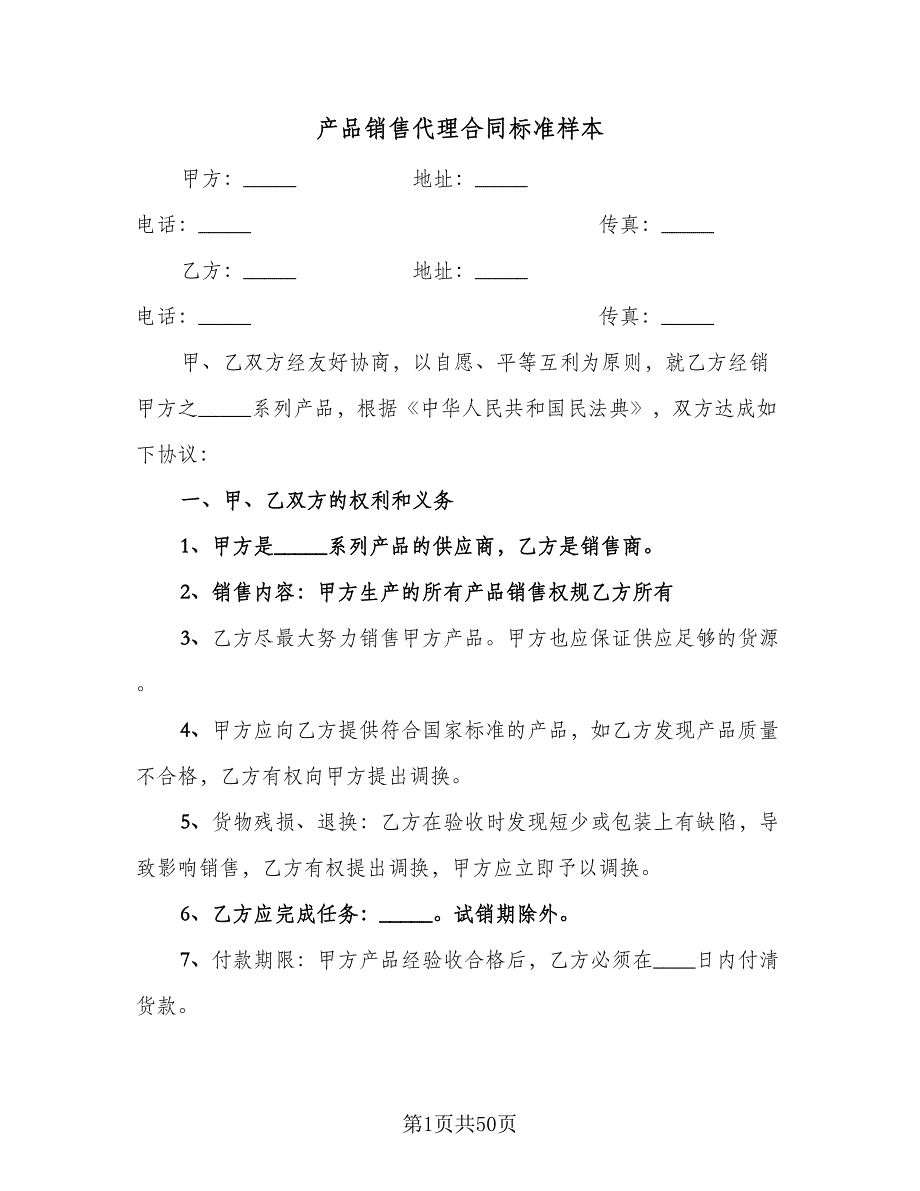 产品销售代理合同标准样本
甲方：_____ 地址：_____
电话：_____ 传真：_____
乙方：_____ 地址：_____
电话：_____ 传真：_____
甲、乙双方经友好协商，以自愿、平等互利为原则，就乙方经销
甲方之_____系列产品，根据《中华人民共和国民法典》，双方达成如
下协议：
一、甲、乙双方的权利和义务
1、甲方是_____系列产品的供应商，乙方是销售商。
2、销售内容：甲方生产的所有产品销售权规乙方所有
3、乙方尽最大努力销售甲方产品。甲方也应保证供应足够的货源
。
4、甲方应向乙方提供符合国家标准的产品，如乙方发现产品质量
不合格，乙方有权向甲方提出调换。
5、货物残损、退换：乙方在验收时发现短少或包装上有缺陷，导
致影响销售，乙方有权提出调换，甲方应立即予以调换。
6、乙方应完成任务：_____。试销期除外。
7、付款期限：甲方产品经验收合格后，乙方必须在____日内付清
货款。
第1页共50页